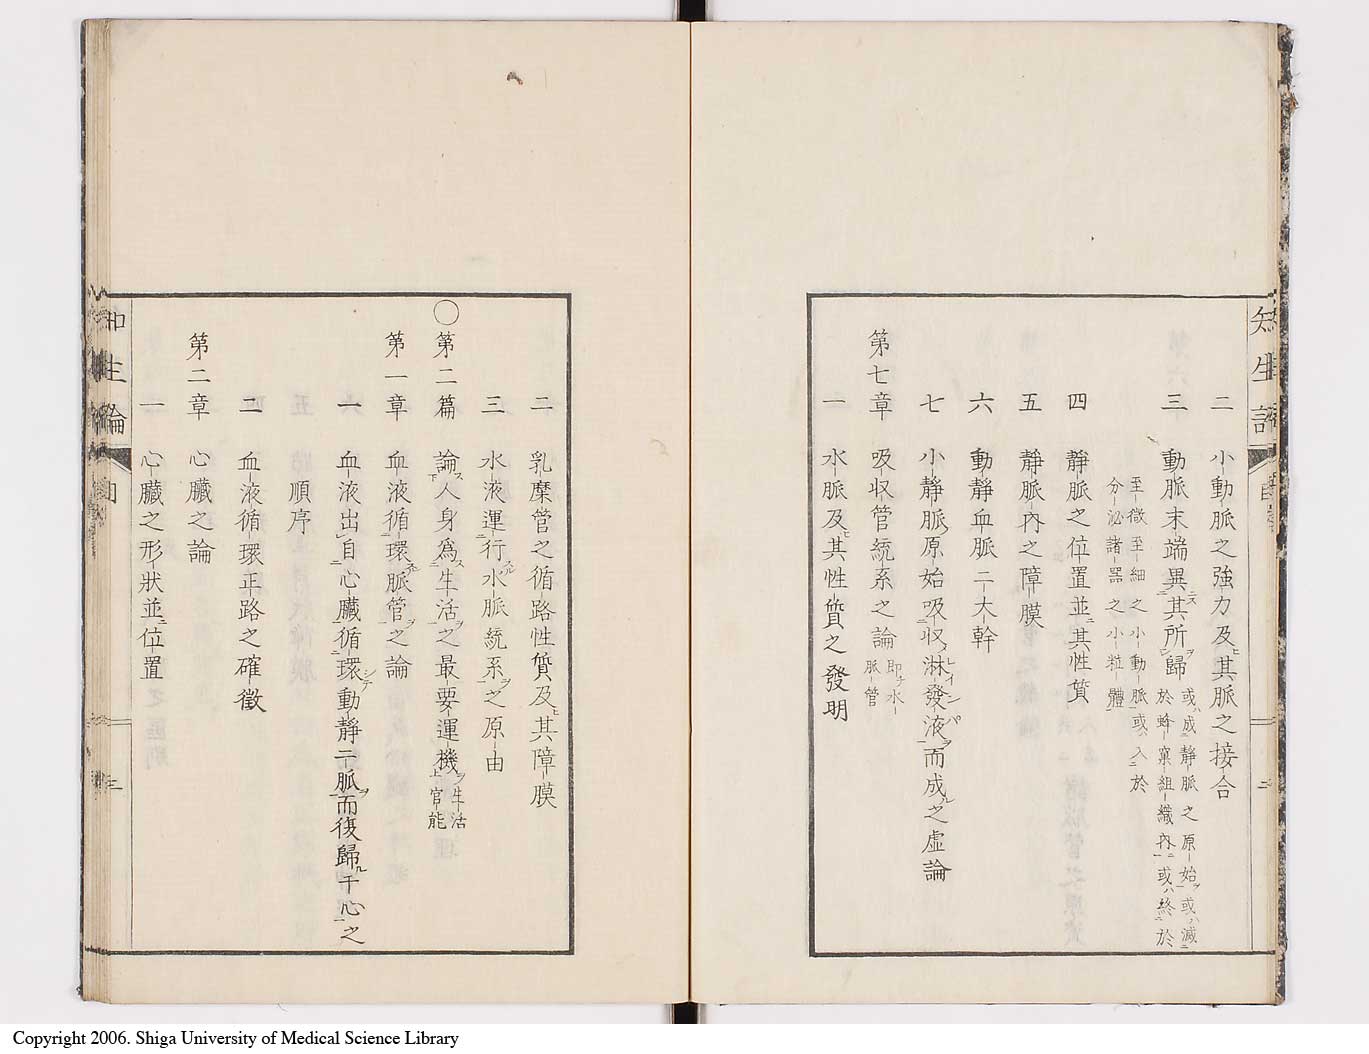 二 小動脈之強力及其脈之接合
三 動脈末端異其所歸 或成靜脈之原始或減
於蜂窠組織內或終於
至微至細之小動脈或入於
分泌諸器之小粒體
四 靜脈之位置並其性質
五 靜脈內之障膜
六 動靜血脈二大幹
七 小靜脈原始吸収淋發液而成之虛論
第七章 吸収管統系之論 即水
脈管
一 水脈及其性質之發明
知生論
二
二 乳糜管之循路性質及其障膜
三 水液運行水脈統系之原由
○第二篇 論人身爲生活之最要運機 生活
官能
第一章 血液循環脈管之論
一 血液出自心臟循環動靜二脈而復歸于心之
順序
二 血液循環正路之確徵
第二章 心臟之論
一 心臟之形狀並位置
知生論
三
Copyright 2006. Shiga University of Medical Science Library